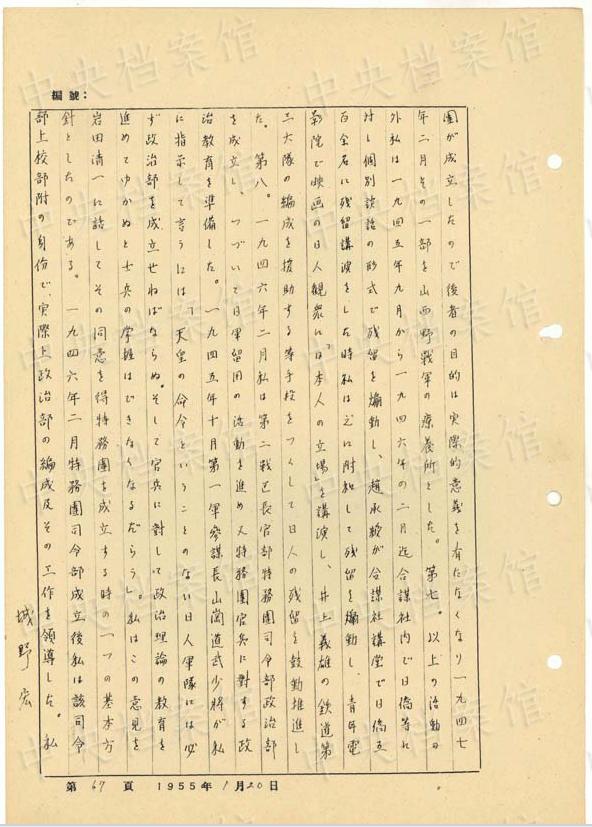 編號：
團が成立したので後者の目的は実際的意義を有たなくなり一九四七
年二月その一部を山西野戰軍の療養所とした。第七。以上の活動の
外私は一九四五年九月から一九四六年の二月迄合謀社内で日僑等に
対し個別談話の形式で残留を煽動し、趙承綬が合謀社講堂で日僑五
百余名に残留講演をした時私は之に附和して残留を煽動し、青年電
影院で映画の日人観衆に「日本人の立場」を講演し、井上義雄の鉄道第
三大隊の編成を援助する等手段をつくして日人の残留を鼓動推進し
た。第八。一九四六年二月私は第二戰区長官部特務團司令部政治部
を成立し、つづいて日軍留用の活動を進め又特務團官兵に対する政
治教育を準備した。一九四五年十月第一軍参謀長山岡道武少将が私
に指示して言うには「天皇の命令ということのない日人軍隊には必
ず政治部を成立せねばならぬ。そして官兵に対して政治理論の教育を
進めてゆかぬと士兵の掌握はできなくなるだらう」。私はこの意見を
岩田清一に話してその同意を得特務團を成立する時の一つの基本方
針としたのである。一九四六年二月特務團司令部成立後私は該司令
部上校部附の身份で、実際上政治部の編成及その工作を領導した。私
城野宏
第67頁 1955年1月20日
中央档案馆